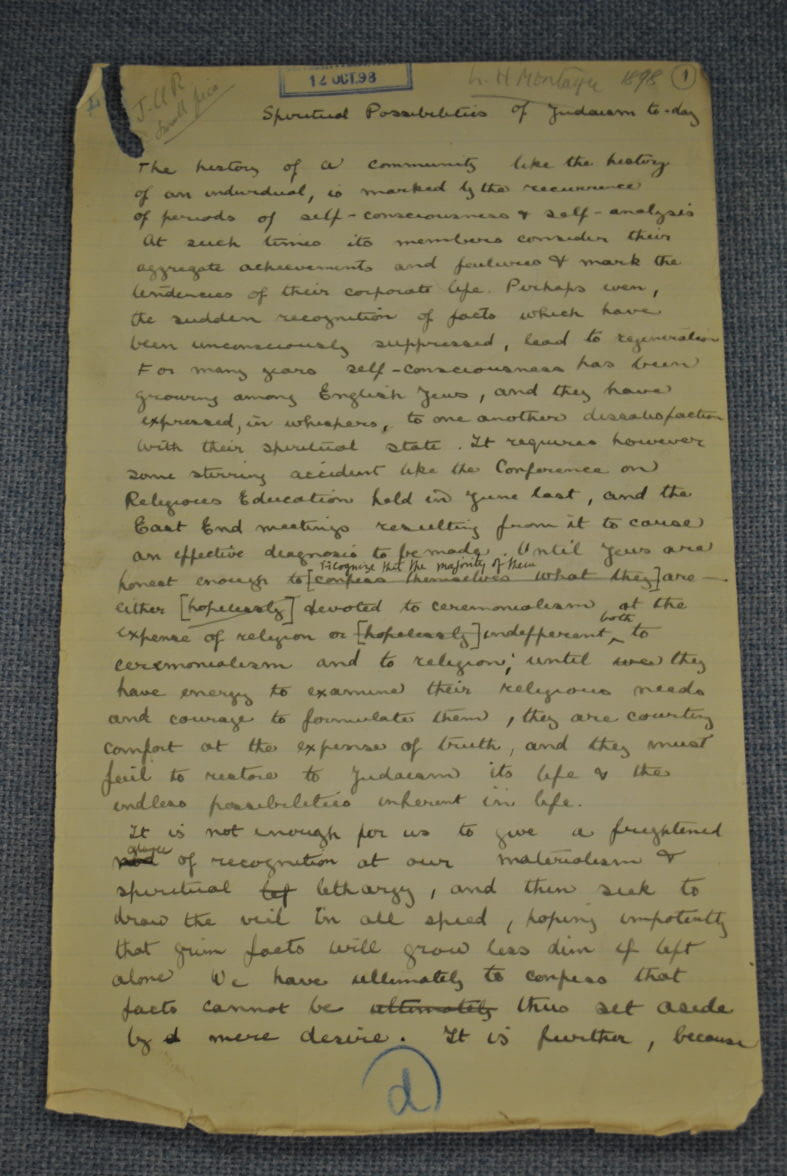 J.Q.R.
Small pica
12 OCT. 98
L. H. Montagu 1898 1
Spiritual Possibilities of Judaism to-day
The history of a community like the history
of an individual, is marked by the recurrence
of periods of self-consciousness & self-analysis
At such times its members consider their
aggregate achievements and failures & mark the
tendencies of their corporate life. Perhaps even,
the sudden recognition of facts which have
been unconsciously suppressed, lead to regeneration
For many years self-consciousness has been
growing among English Jews, and they have
expressed, in whispers, to one another dissatisfaction
with their spiritual state. It requires however
some stirring accident like the Conference on
Religious Education held in June last, and the
East End meetings resulting from it to cause
an effective diagnosis to be made. Until Jews are
recognize that the majority of them
honest enough to [confess themselves what they] are
either [hopelessly] devoted to ceremonialism at the
both
expense of religion or [hopelessly] indifferent to
ceremonialism and to religion; until they
have energy to examine their religious needs
and courage to formulate them, they are courting
comfort at the expense of truth, and they must
fail to restore to Judaism its life & the
endless possibilities inherent in life.
It is not enough for us to give a frightened
glance
nod of recognition at our materialism &
spiritual lethargy, and then seek to
draw the veil in all speed, hoping impotently
that grim facts will grow less dim if left
alone We have ultimately to confess that
facts cannot be ultimately thus set aside
by mere desire. It is further, because
d